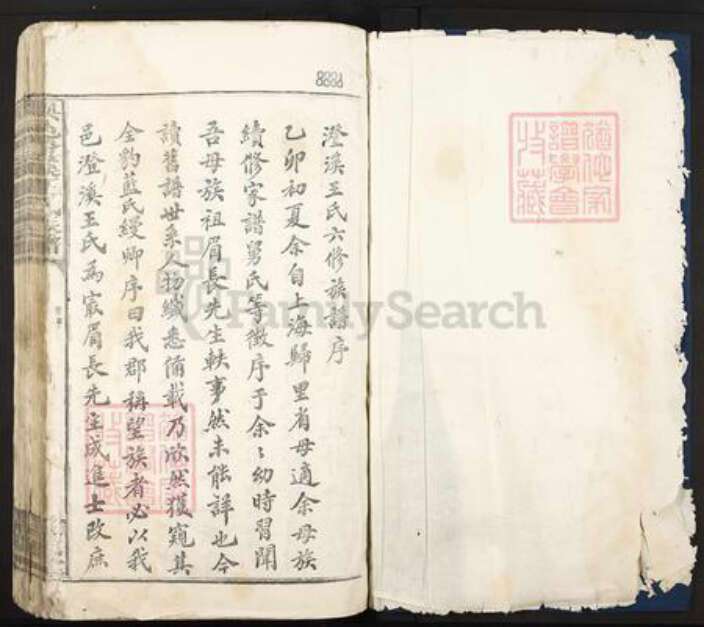 澄溪王氏六修族譜序
乙卯初夏余自上海歸里省母適余母族
續修家譜舅氏等徵序于余〻幼時習聞
吾母族祖眉長先生軼事然未能詳也今
讀舊譜世系人物纖悉備載乃欣然獲窺其
全豹藍氏縵卿序曰我郡稱望族者必以我
邑澄溪王氏為最眉長先生成進士改庶
譜學會
收藏
FamilySearch